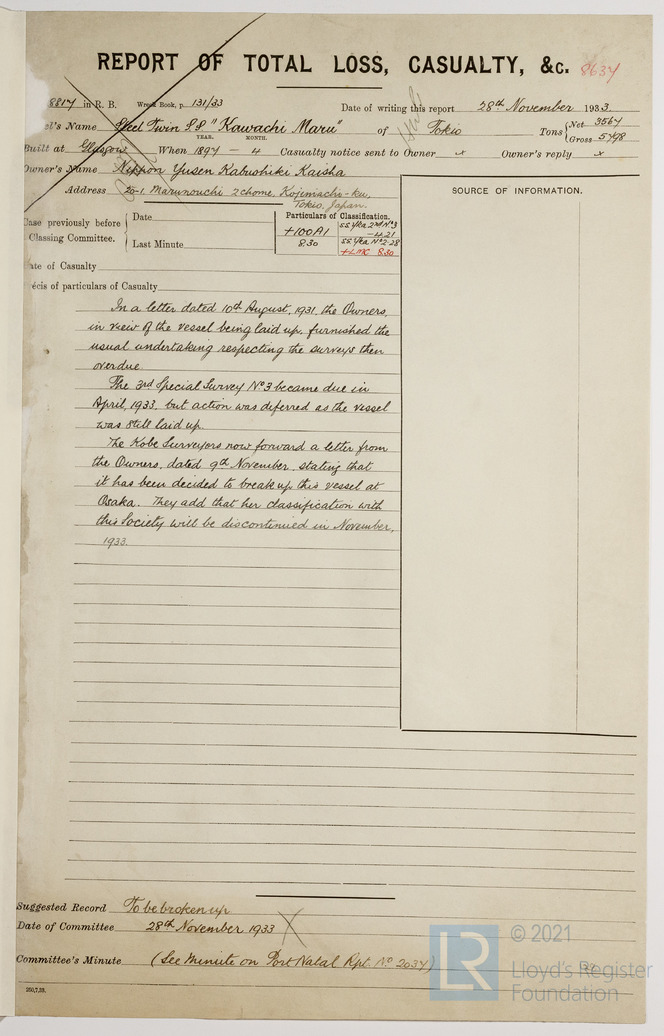 REPORT OF TOTAL LOSS, CASUALTY, &c. 8634
8817 in R. B. Wreck Book, p. 131/33 Date of writing this report 28th November 1933.
el's Name Steel Twin S.S "Kawachi Maru" of Tokio Tons { Net 3567 Gross 5798
YEAR. MONTH.
Built at Glasgow When 1897 - 4 Casualty notice sent to Owner x Owner's reply x
Owner's Name Nippon Yusen Kabushiki Kaisha
Address 20-1, Marunouchi 2 chome, Kojimachi-ku,
Tokio, Japan.
SOURCE OF INFORMATION.
Case previously before Classing Committee. { Date
Last Minute
Particulars of Classification.
+100A1
8.30
SS. Yka. 2nd No 3
-4.21
SS. Yka No 2-28
+LMC 8.30
ate of Casualty
écis of particulars of Casualty
In a letter dated 10th August, 1931, the Owners,
in view of the vessel being laid up, furnished the
usual undertaking respecting the surveys then
overdue.
The 3rd Special Survey No 3 became due in
April, 1933, but action was deferred as the vessel
was still laid up.
The Kobe Surveyors now forward a letter from
the Owners, dated 9th November, stating that
it has been decided to break up this vessel at
Osaka. They add that her classification with
this Society will be discontinued in November,
1933.
Suggested Record To be broken up
Date of Committee 28th November 1933
Committee's Minute (See Minute on Port Natal Rpt. No 2034)
250,7,28.
LR
© 2021
Lloyd's Register
Foundation